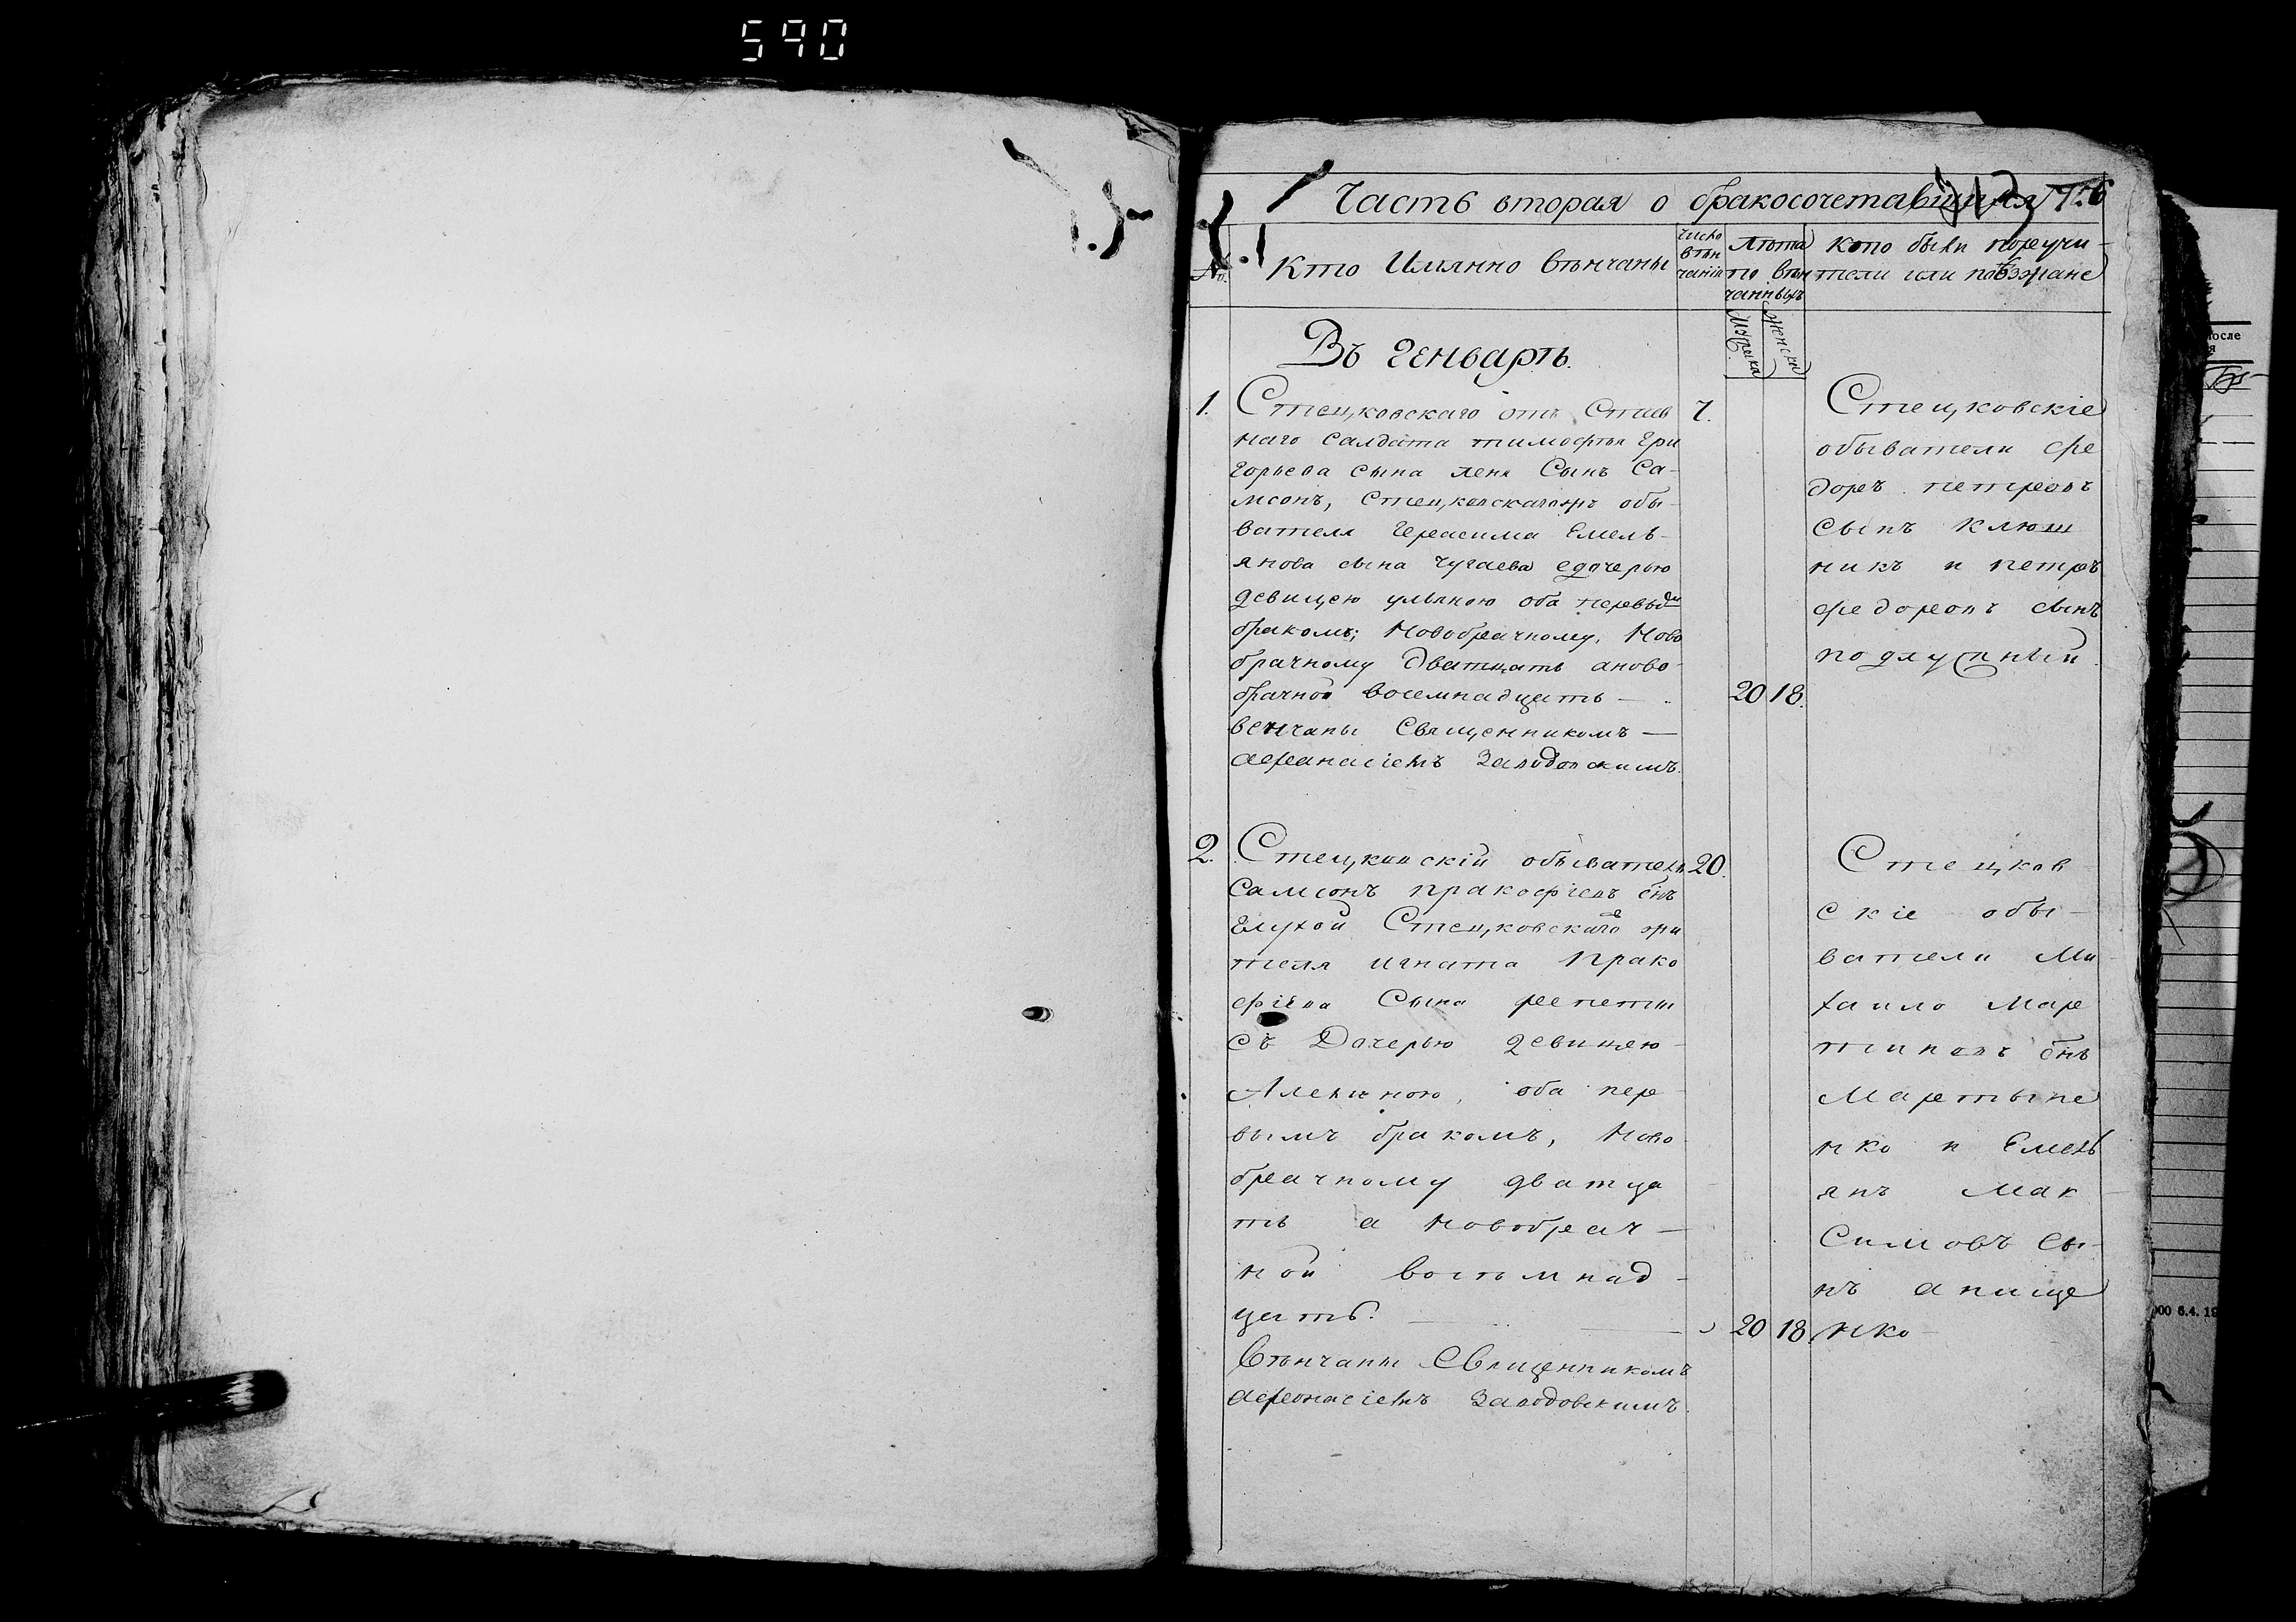 590
Часть вторая о бракосочетавшихся
№.
Кто Имянно Вѣнчаны
число
вѣн
чанія
Лѣта
то вѣн
чанныхъ
Мужска
женска
кто были поручи-
тели или поѣзжане
Въ Генварѣ.
1. Стецковскаго отъ Став
наго салдата тимофѣя Гри
горьева сына лени Сынъ Са-
мсонъ, Стецковскагожъ обы-
вателя Герасима Емель-
янова сына Чугаева сдочерью
девицею ульяною оба первым
бракомъ; Новобрачному, Ново
брачному дватцать аново-
брачной восемнадцать —
венчаны Священникомъ —
афанасіемъ Заводовскимъ.
7.
20 18.
Стецковскіе
обыватели фе
доръ петровъ
сынъ Клюш
никъ и петръ
федоровъ сынъ
подлужный
2. Стецковскій обыватель
Самсонъ пракофіевъ снъ
Глухой Стецковскаго жи
теля игната Прако
фіева Сына репетш
съ Дочерью девицею
Алениною, оба пер-
вымъ бракомъ, Ново
брачному дватца
ть а новобрач-
ной восемнад-
цать.
Вѣнчаны Священникомъ
афонасіемъ Заводовскимъ.
20.
20 18.
Стецков
скіе обы-
ватели Ми-
хаило Мар
тиновъ снъ
Мартыне
нко и Емель
янъ Мак-
Симовъ сы-
нъ анище
нко